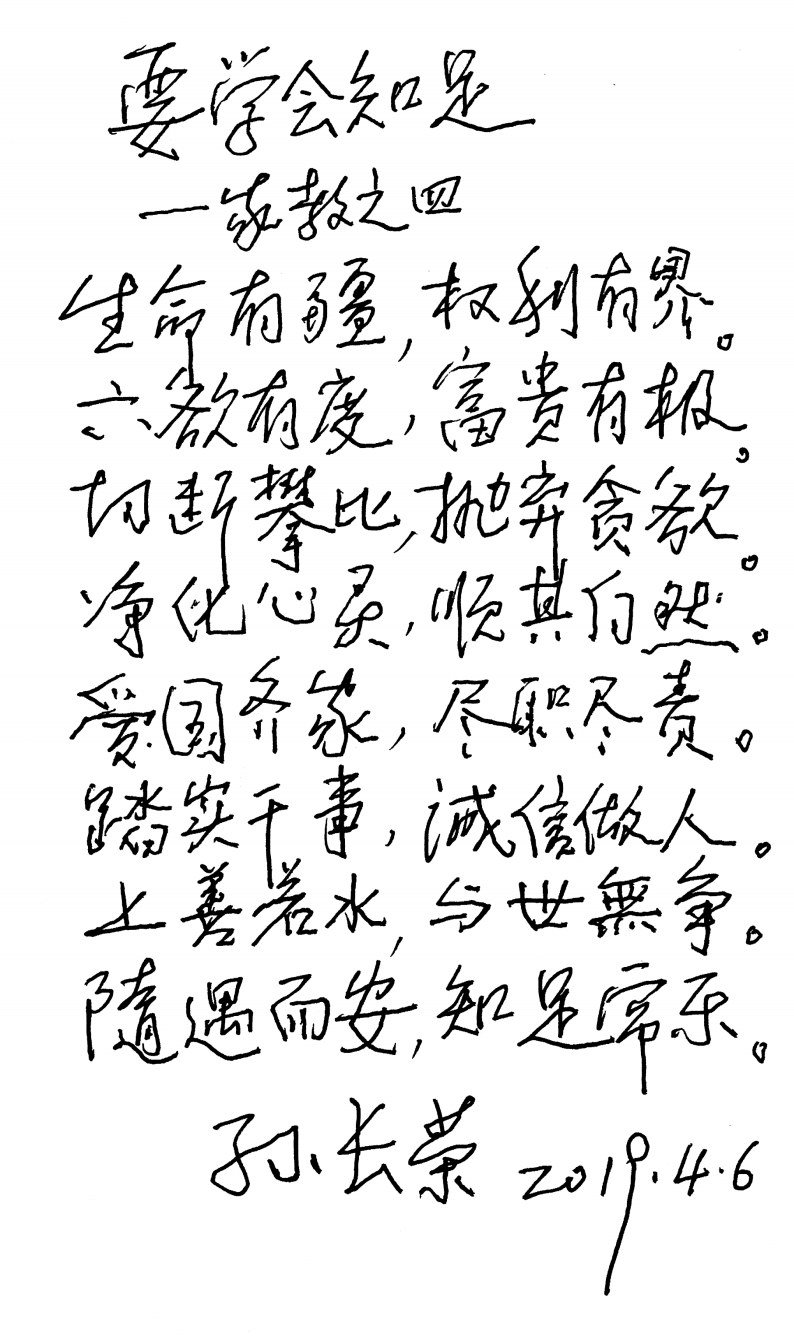 要学会知足
一家教之四
生命有疆,权利有界。
六欲有度,富贵有极。
切断攀比,抛弃贪欲。
净化心灵,顺其自然。
爱国齐家,尽职尽责。
踏实干事,诚信做人。
上善若水,与世無争。
随遇而安,知足常乐。
孙长荣 2019.4.6